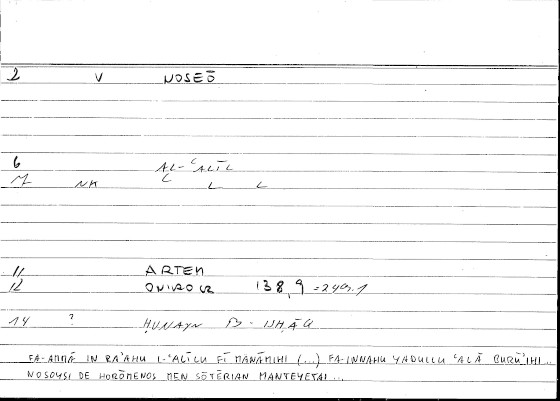 2 V NOSEŌ
6 AL-ʿALĪL
NK L L L
11 ARTEM
12 ONIROCR 138,9 = 249,1
14 ? ḤUNAYN B. ISḤĀQ
FA-AMMĀ IN RAʾAHU L-ʿALĪLU FĪ MANĀMIHI (...) FA-INNAHU YADULLU ʿALĀ BURŪʾIHI..
NOSOYSI DE HORŌMENOS MEN SŌTĒRIAN MANTEYETAI...